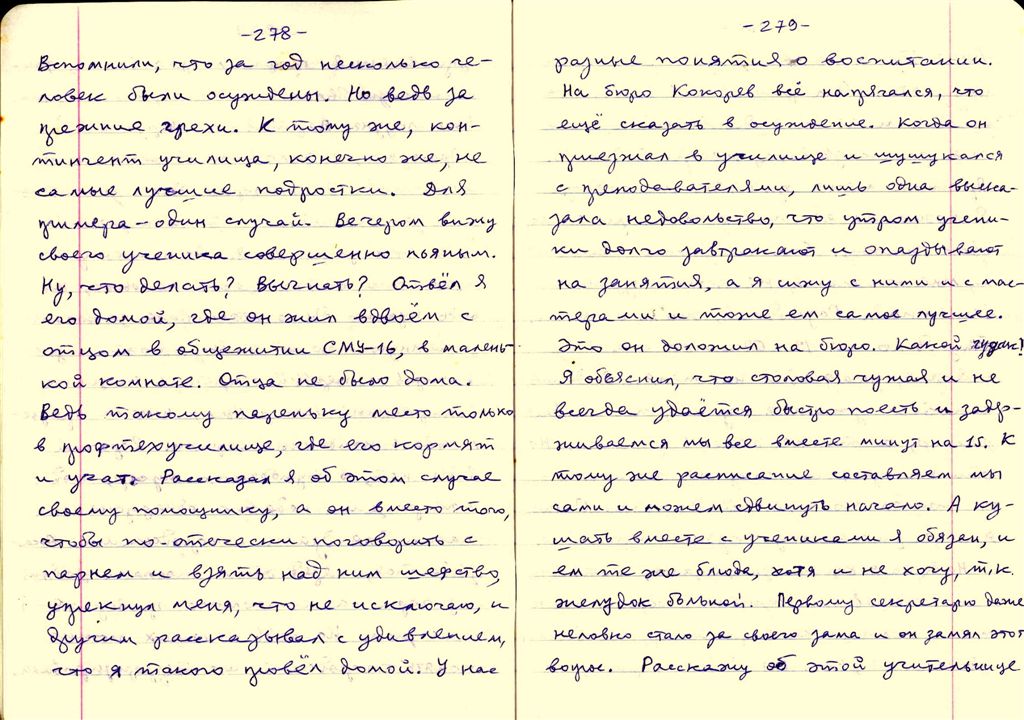 -278-
Вспомнили, что за год несколько че-
ловек были осуждены. Но ведь за
прежние грехи. К тому же, кон-
тингент училища, конечно же, не
самые лучшие подростки. Для
примера - один случай. Вечером вижу
своего ученика совершенно пьяным.
Ну, что делать? Выгнать? Отвёл я
его домой, где он жил вдвоём с
отцом в общежитии СМУ-16, в малень-
кой комнате. Отца не было дома.
Ведь такому пареньку место только
в профтехучилище, где его кормят
и учат. Рассказал я об этом случае
своему помощнику, а он вместо того,
чтобы по-отечески поговорить с
парнем и взять над ним шефство,
упрекнул меня, что не исключаю, и
другим рассказывал с удивлением,
что я такого провёл домой. У нас
-279-
разные понятия о воспитании.
На бюро Кокорев всё напрягался, что
ещё сказать в осуждение. Когда он
приезжал в училище и шушукался
с преподавателями, лишь одна выска-
зала недовольство, что утром учени-
ки долго завтракают и опаздывают
на занятия, а я сижу с ними и с мас-
терами и тоже ем самое лучшее.
Это он доложил на бюро. Какой чудак!
Я объяснил, что столовая чужая и не
всегда удаётся быстро поесть и задер-
живаемся мы все вместе минут на 15. К
тому же расписание составляем мы
сами и можем сдвинуть начало. А ку-
шать вместе с учениками я обязан, и
ем те же блюда, хотя и не хочу, т.к.
желудок больной. Первому секретарю даже
неловко стало за своего зама и он замял этот
вопрос. Расскажу об этой учительнице